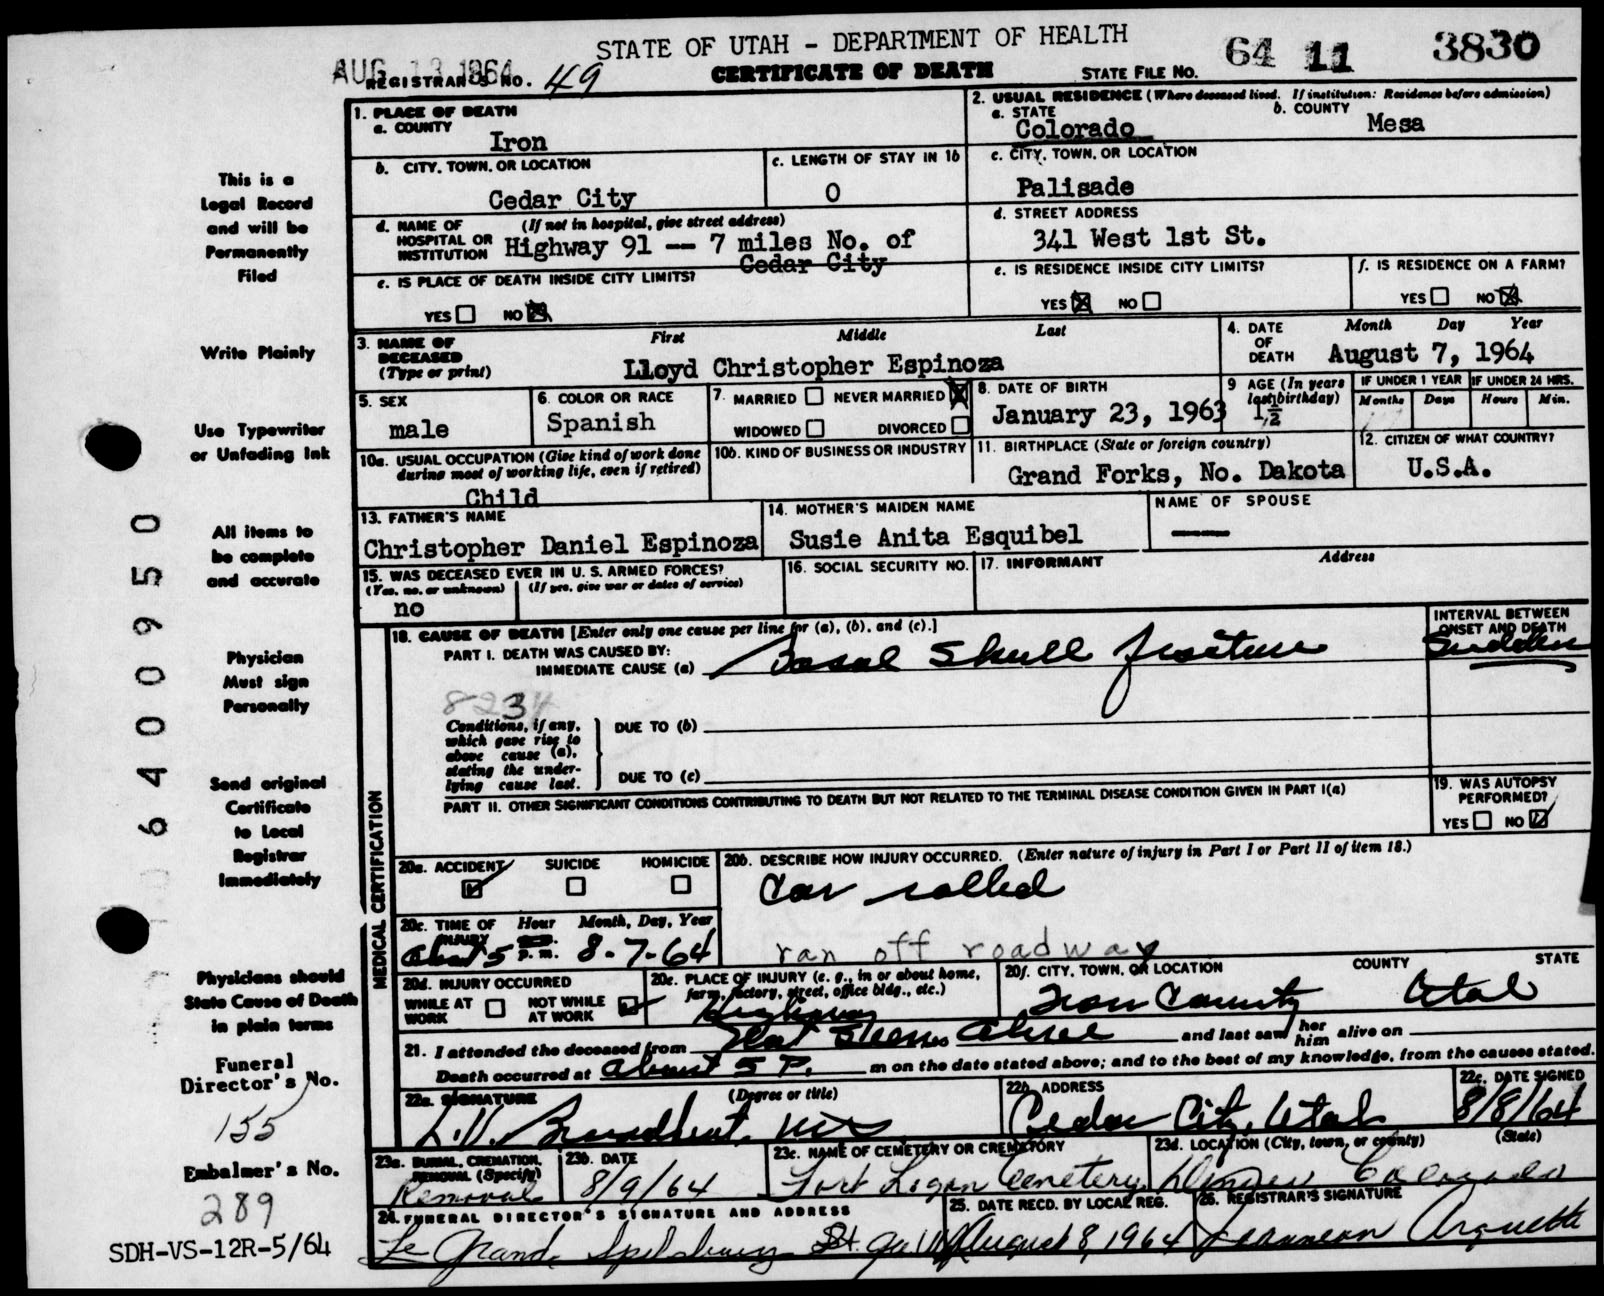 STATE OF UTAH - DEPARTMENT OF HEALTH
CERTIFICATE OF DEATH
AUG 13 1964
REGISTRAR'S NO. 49
STATE FILE NO. 64 11 3830
1. PLACE OF DEATH
a. COUNTY
Iron
2. USUAL RESIDENCE (Where deceased lived. If institution: Residence before admission)
a. STATE
Colorado
b. COUNTY
Mesa
b. CITY, TOWN, OR LOCATION
Cedar City
c. LENGTH OF STAY IN 1b
0
c. CITY, TOWN, OR LOCATION
Palisade
d. NAME OF HOSPITAL OR INSTITUTION
(If not in hospital, give street address)
Highway 91 -- 7 miles No. of
Cedar City
d. STREET ADDRESS
341 West 1st St.
e. IS PLACE OF DEATH INSIDE CITY LIMITS?
YES NO
e. IS RESIDENCE INSIDE CITY LIMITS?
YES NO
f. IS RESIDENCE ON A FARM?
YES NO
3. NAME OF DECEASED
(Type or print)
First Middle Last
Lloyd Christopher Espinoza
4. DATE OF DEATH
Month Day Year
August 7, 1964
5. SEX
male
6. COLOR OR RACE
Spanish
7. MARRIED NEVER MARRIED
WIDOWED DIVORCED
8. DATE OF BIRTH
January 23, 1963
9 AGE (In years last birthday)
1½
IF UNDER 1 YEAR
Months Days
IF UNDER 24 HRS.
Hours Min.
10a. USUAL OCCUPATION (Give kind of work done
during most of working life, even if retired)
Child
10b. KIND OF BUSINESS OR INDUSTRY
11. BIRTHPLACE (State or foreign country)
Grand Forks, No. Dakota
12. CITIZEN OF WHAT COUNTRY?
U.S.A.
13. FATHER'S NAME
Christopher Daniel Espinoza
14. MOTHER'S MAIDEN NAME
Susie Anita Esquibel
NAME OF SPOUSE
15. WAS DECEASED EVER IN U. S. ARMED FORCES?
(Yes, no, or unknown) (If yes, give war or dates of service)
no
16. SOCIAL SECURITY NO.
17. INFORMANT Address
MEDICAL CERTIFICATION
18. CAUSE OF DEATH [Enter only one cause per line for (a), (b), and (c).]
PART I. DEATH WAS CAUSED BY:
IMMEDIATE CAUSE (a) Basal Skull fracture
INTERVAL BETWEEN ONSET AND DEATH
Sudden
823
Conditions, if any,
which gave rise to
above cause (a),
stating the under-
lying cause last.
DUE TO (b)
DUE TO (c)
PART II. OTHER SIGNIFICANT CONDITIONS CONTRIBUTING TO DEATH BUT NOT RELATED TO THE TERMINAL DISEASE CONDITION GIVEN IN PART I(a)
19. WAS AUTOPSY PERFORMED?
YES NO
20a. ACCIDENT SUICIDE HOMICIDE
20b. DESCRIBE HOW INJURY OCCURRED. (Enter nature of injury in Part I or Part II of item 18.)
Car rolled
ran off roadway
20c. TIME OF INJURY Hour Month, Day, Year
about 5 p. m. 8-7-64
20d. INJURY OCCURRED
WHILE AT WORK NOT WHILE AT WORK
20e. PLACE OF INJURY (e. g., in or about home,
farm, factory, street, office bldg., etc.)
Highway
20f. CITY, TOWN, OR LOCATION COUNTY STATE
Iron County Utah
21. I attended the deceased from Not Seen Alive and last saw her him alive on
Death occurred at about 5 P. m on the date stated above; and to the best of my knowledge, from the causes stated.
22a. SIGNATURE (Degree or title)
L.V. Broadbent MD
22b. ADDRESS
Cedar City, Utah
22c. DATE SIGNED
8/8/64
23a. BURIAL, CREMATION, REMOVAL (Specify)
Removal
23b. DATE
8/9/64
23c. NAME OF CEMETERY OR CREMATORY
Fort Logan Cemetery
23d. LOCATION (City, town, or county) (State)
Denver Colorado
24. FUNERAL DIRECTOR'S SIGNATURE AND ADDRESS
Le Grande Spilsbury
25. DATE RECD. BY LOCAL REG.
August 8, 1964
26. REGISTRAR'S SIGNATURE
Arquette
This is a
Legal Record
and will be
Permanently
Filed
Write Plainly
Use Typewriter
or Unfading Ink
All items to
be complete
and accurate
Physician
Must sign
Personally
Send original
Certificate
to Local
Registrar
Immediately
Physicians should
State Cause of Death
in plain terms
Funeral
Director's No.
155
Embalmer's No.
289
SDH-VS-12R-5/64
6400950